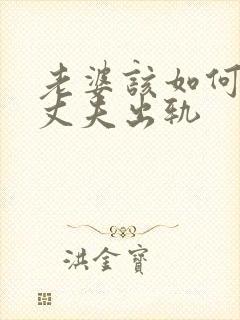 老婆該如何
丈夫出轨
洪金寶